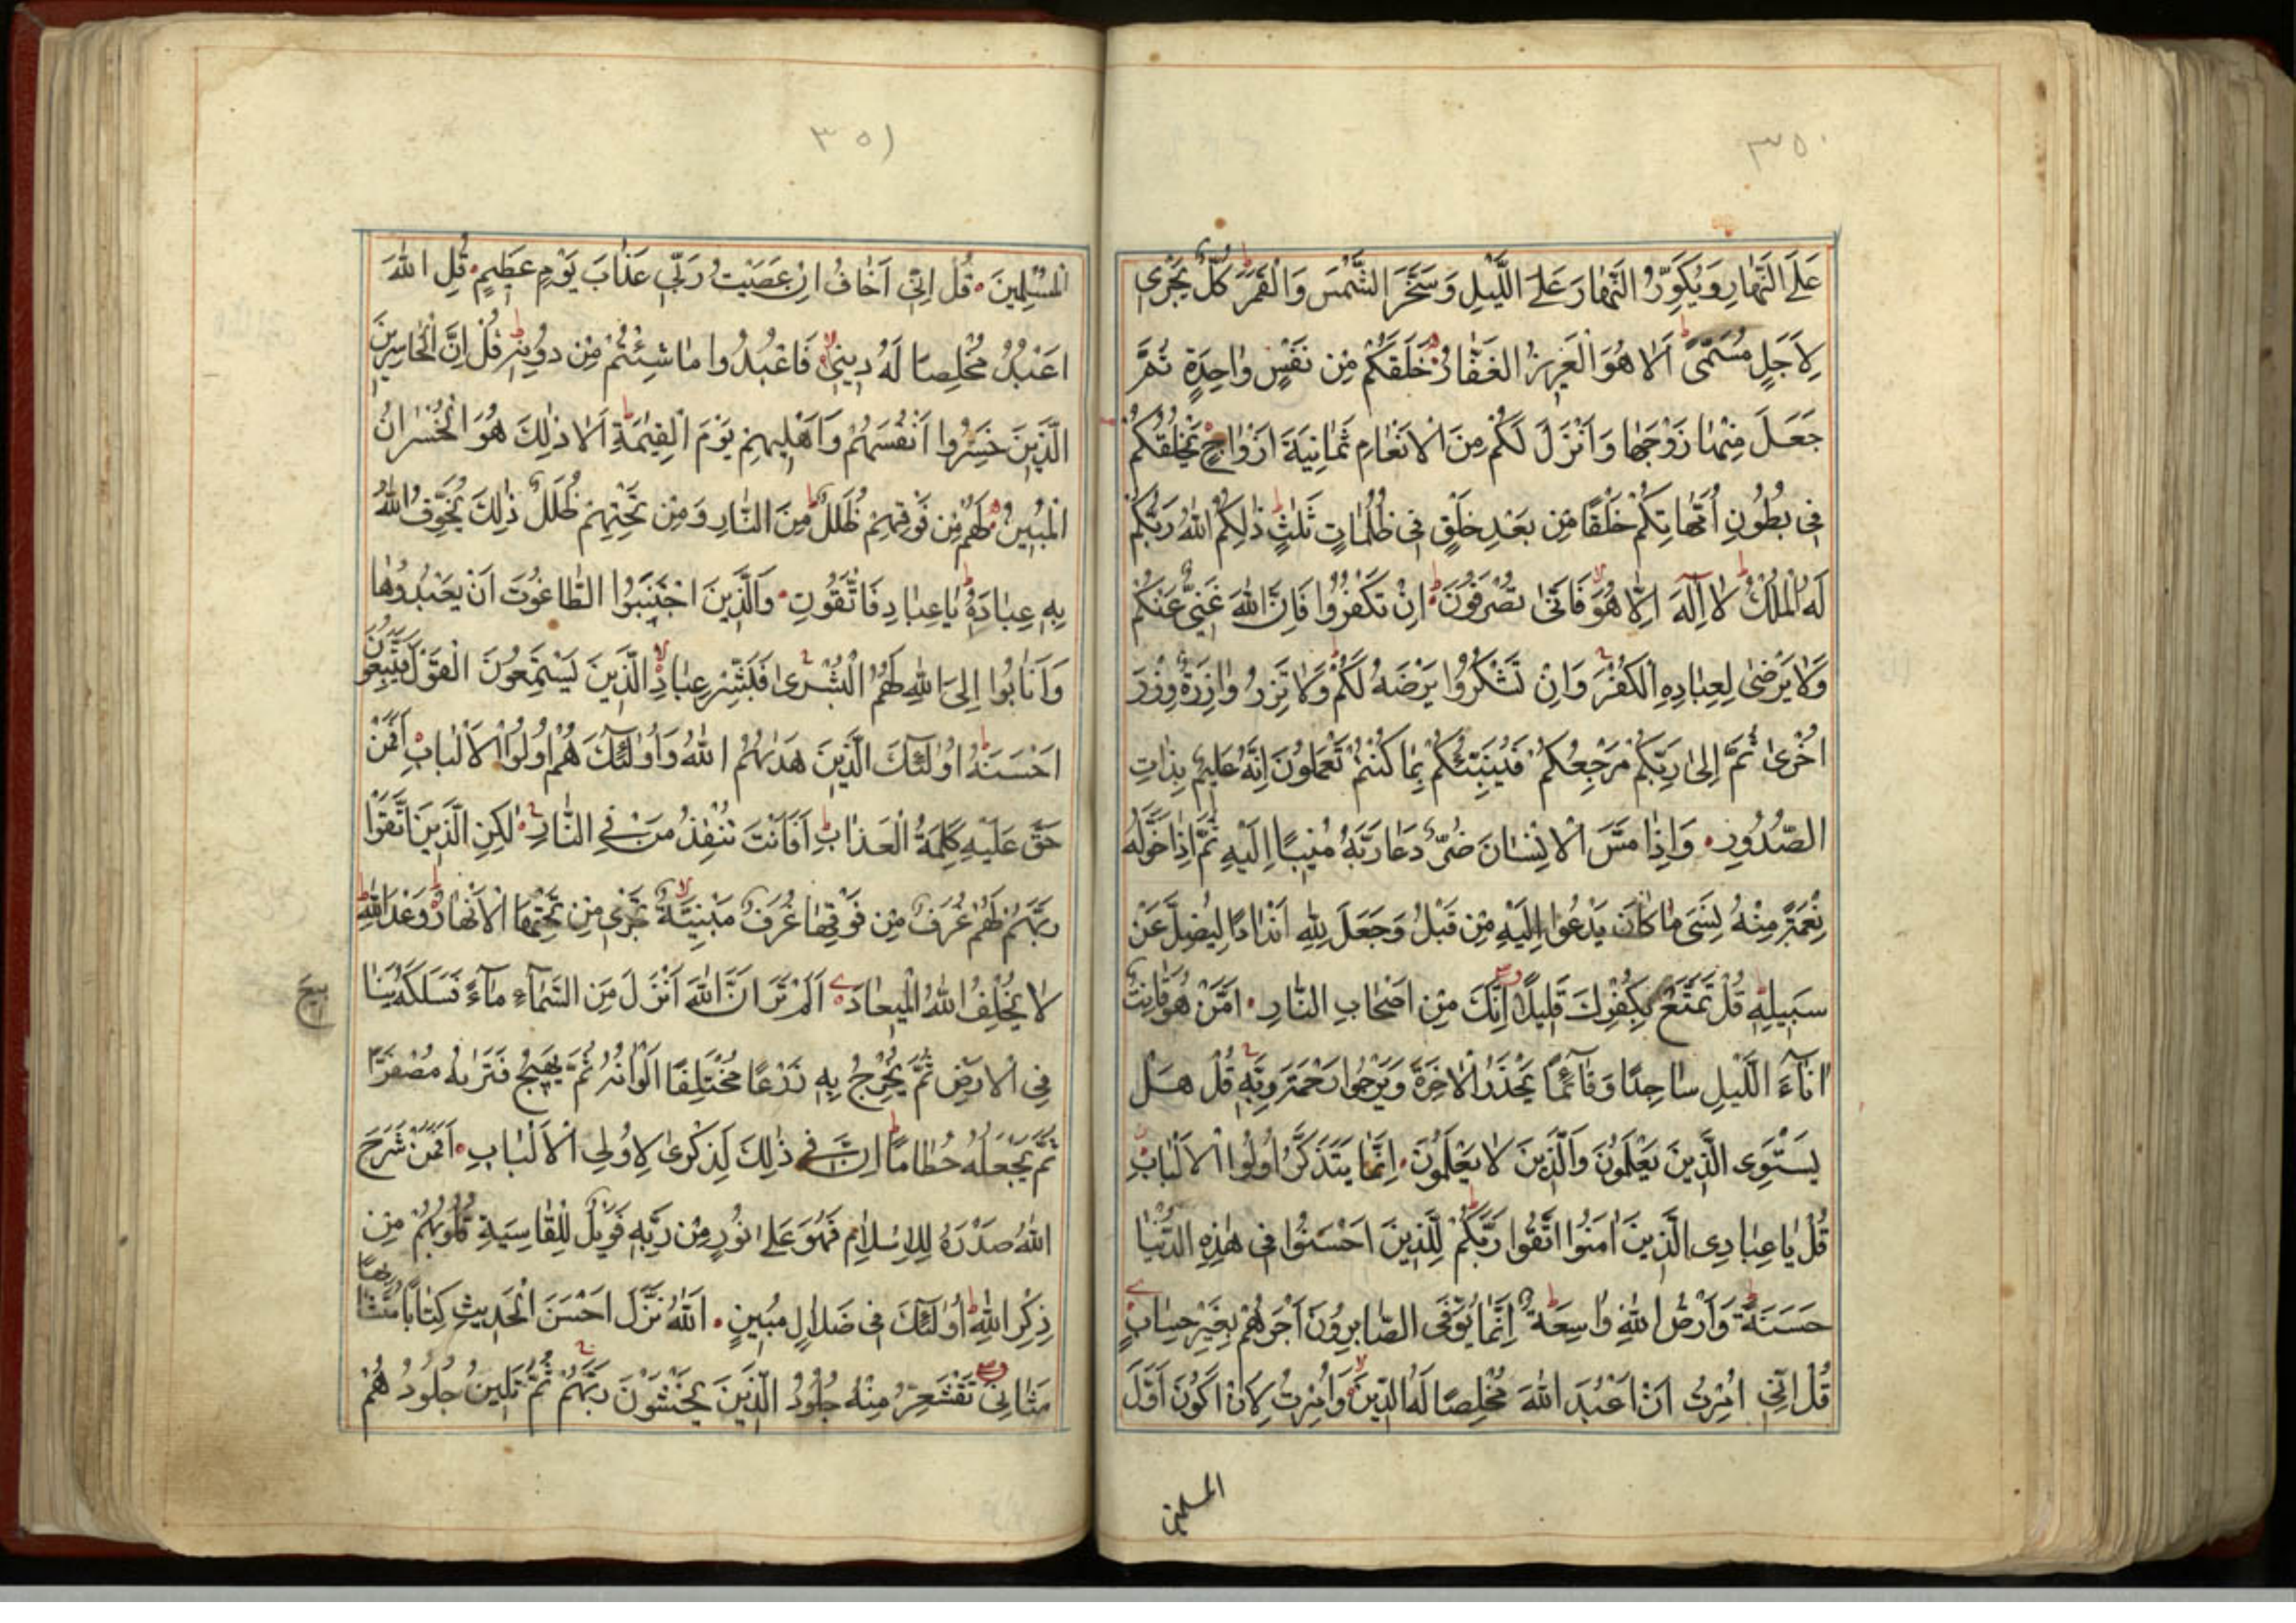 ٣٥٠
عَلَى النَّهَارِ وَيُكَوِّرُ النَّهَارَ عَلَى اللَّيْلِ وَسَخَّرَ الشَّمْسَ وَالْقَمَرَ كُلٌّ يَجْرِي
لِأَجَلٍ مُسَمًّى أَلَا هُوَ الْعَزِيزُ الْغَفَّارُ خَلَقَكُمْ مِنْ نَفْسٍ وَاحِدَةٍ ثُمَّ
جَعَلَ مِنْهَا زَوْجَهَا وَأَنْزَلَ لَكُمْ مِنَ الْأَنْعَامِ ثَمَانِيَةَ أَزْوَاجٍ يَخْلُقُكُمْ
فِي بُطُونِ أُمَّهَاتِكُمْ خَلْقًا مِنْ بَعْدِ خَلْقٍ فِي ظُلُمَاتٍ ثَلٰثٍ ذٰلِكُمُ اللّٰهُ رَبُّكُمْ
لَهُ الْمُلْكُ لَا إِلٰهَ إِلَّا هُوَ فَأَنَّى تُصْرَفُونَ إِنْ تَكْفُرُوا فَإِنَّ اللّٰهَ غَنِيٌّ عَنْكُمْ
وَلَا يَرْضٰى لِعِبَادِهِ الْكُفْرَ وَإِنْ تَشْكُرُوا يَرْضَهُ لَكُمْ وَلَا تَزِرُ وَازِرَةٌ وِزْرَ
أُخْرٰى ثُمَّ إِلٰى رَبِّكُمْ مَرْجِعُكُمْ فَيُنَبِّئُكُمْ بِمَا كُنْتُمْ تَعْمَلُونَ إِنَّهُ عَلِيمٌ بِذَاتِ
الصُّدُورِ وَإِذَا مَسَّ الْإِنْسَانَ ضُرٌّ دَعَا رَبَّهُ مُنِيبًا إِلَيْهِ ثُمَّ إِذَا خَوَّلَهُ
نِعْمَةً مِنْهُ نَسِيَ مَا كَانَ يَدْعُوا إِلَيْهِ مِنْ قَبْلُ وَجَعَلَ لِلّٰهِ أَنْدَادًا لِيُضِلَّ عَنْ
سَبِيلِهِ قُلْ تَمَتَّعْ بِكُفْرِكَ قَلِيلًا إِنَّكَ مِنْ أَصْحَابِ النَّارِ أَمَّنْ هُوَ قَانِتٌ
اٰنَاءَ اللَّيْلِ سَاجِدًا وَقَائِمًا يَحْذَرُ الْاٰخِرَةَ وَيَرْجُوا رَحْمَةَ رَبِّهِ قُلْ هَلْ
يَسْتَوِى الَّذِينَ يَعْلَمُونَ وَالَّذِينَ لَا يَعْلَمُونَ إِنَّمَا يَتَذَكَّرُ أُولُوا الْأَلْبَابِ
قُلْ يَا عِبَادِى الَّذِينَ اٰمَنُوا اتَّقُوا رَبَّكُمْ لِلَّذِينَ أَحْسَنُوا فِي هٰذِهِ الدُّنْيَا
حَسَنَةٌ وَأَرْضُ اللّٰهِ وَاسِعَةٌ إِنَّمَا يُوَفَّى الصَّابِرُونَ أَجْرَهُمْ بِغَيْرِ حِسَابٍ
قُلْ إِنِّي أُمِرْتُ أَنْ أَعْبُدَ اللّٰهَ مُخْلِصًا لَهُ الدِّينَ وَأُمِرْتُ لِأَنْ أَكُونَ أَوَّلَ
المسلمين
٣٥١
الْمُسْلِمِينَ قُلْ إِنِّي أَخَافُ إِنْ عَصَيْتُ رَبِّي عَذَابَ يَوْمٍ عَظِيمٍ قُلِ اللّٰهَ
أَعْبُدُ مُخْلِصًا لَهُ دِينِي فَاعْبُدُوا مَا شِئْتُمْ مِنْ دُونِهِ قُلْ إِنَّ الْخَاسِرِينَ
الَّذِينَ خَسِرُوا أَنْفُسَهُمْ وَأَهْلِيهِمْ يَوْمَ الْقِيٰمَةِ أَلَا ذٰلِكَ هُوَ الْخُسْرَانُ
الْمُبِينُ لَهُمْ مِنْ فَوْقِهِمْ ظُلَلٌ مِنَ النَّارِ وَمِنْ تَحْتِهِمْ ظُلَلٌ ذٰلِكَ يُخَوِّفُ اللّٰهُ
بِهِ عِبَادَهُ يَا عِبَادِ فَاتَّقُونِ وَالَّذِينَ اجْتَنَبُوا الطَّاغُوتَ أَنْ يَعْبُدُوهَا
وَأَنَابُوا إِلَى اللّٰهِ لَهُمُ الْبُشْرٰى فَبَشِّرْ عِبَادِ الَّذِينَ يَسْتَمِعُونَ الْقَوْلَ فَيَتَّبِعُونَ
أَحْسَنَهُ أُولٰئِكَ الَّذِينَ هَدٰيهُمُ اللّٰهُ وَأُولٰئِكَ هُمْ أُولُوا الْأَلْبَابِ أَفَمَنْ
حَقَّ عَلَيْهِ كَلِمَةُ الْعَذَابِ أَفَأَنْتَ تُنْقِذُ مَنْ فِي النَّارِ لٰكِنِ الَّذِينَ اتَّقَوْا
رَبَّهُمْ لَهُمْ غُرَفٌ مِنْ فَوْقِهَا غُرَفٌ مَبْنِيَّةٌ تَجْرِي مِنْ تَحْتِهَا الْأَنْهَارُ وَعْدَ اللّٰهِ
لَا يُخْلِفُ اللّٰهُ الْمِيعَادَ أَلَمْ تَرَ أَنَّ اللّٰهَ أَنْزَلَ مِنَ السَّمَاءِ مَاءً فَسَلَكَهُ يَنَا
بيع
فِي الْأَرْضِ ثُمَّ يُخْرِجُ بِهِ زَرْعًا مُخْتَلِفًا أَلْوَانُهُ ثُمَّ يَهِيجُ فَتَرٰيهُ مُصْفَرًّا
ثُمَّ يَجْعَلُهُ حُطَامًا إِنَّ فِي ذٰلِكَ لَذِكْرٰى لِأُولِي الْأَلْبَابِ أَفَمَنْ شَرَحَ
اللّٰهُ صَدْرَهُ لِلْإِسْلَامِ فَهُوَ عَلٰى نُورٍ مِنْ رَبِّهِ فَوَيْلٌ لِلْقَاسِيَةِ قُلُوبُهُمْ مِنْ
ذِكْرِ اللّٰهِ أُولٰئِكَ فِي ضَلَالٍ مُبِينٍ اَللّٰهُ نَزَّلَ أَحْسَنَ الْحَدِيثِ كِتَابًا مُتَشَابِهًا
مَثَانِيَ تَقْشَعِرُّ مِنْهُ جُلُودُ الَّذِينَ يَخْشَوْنَ رَبَّهُمْ ثُمَّ تَلِينُ جُلُودُهُمْ